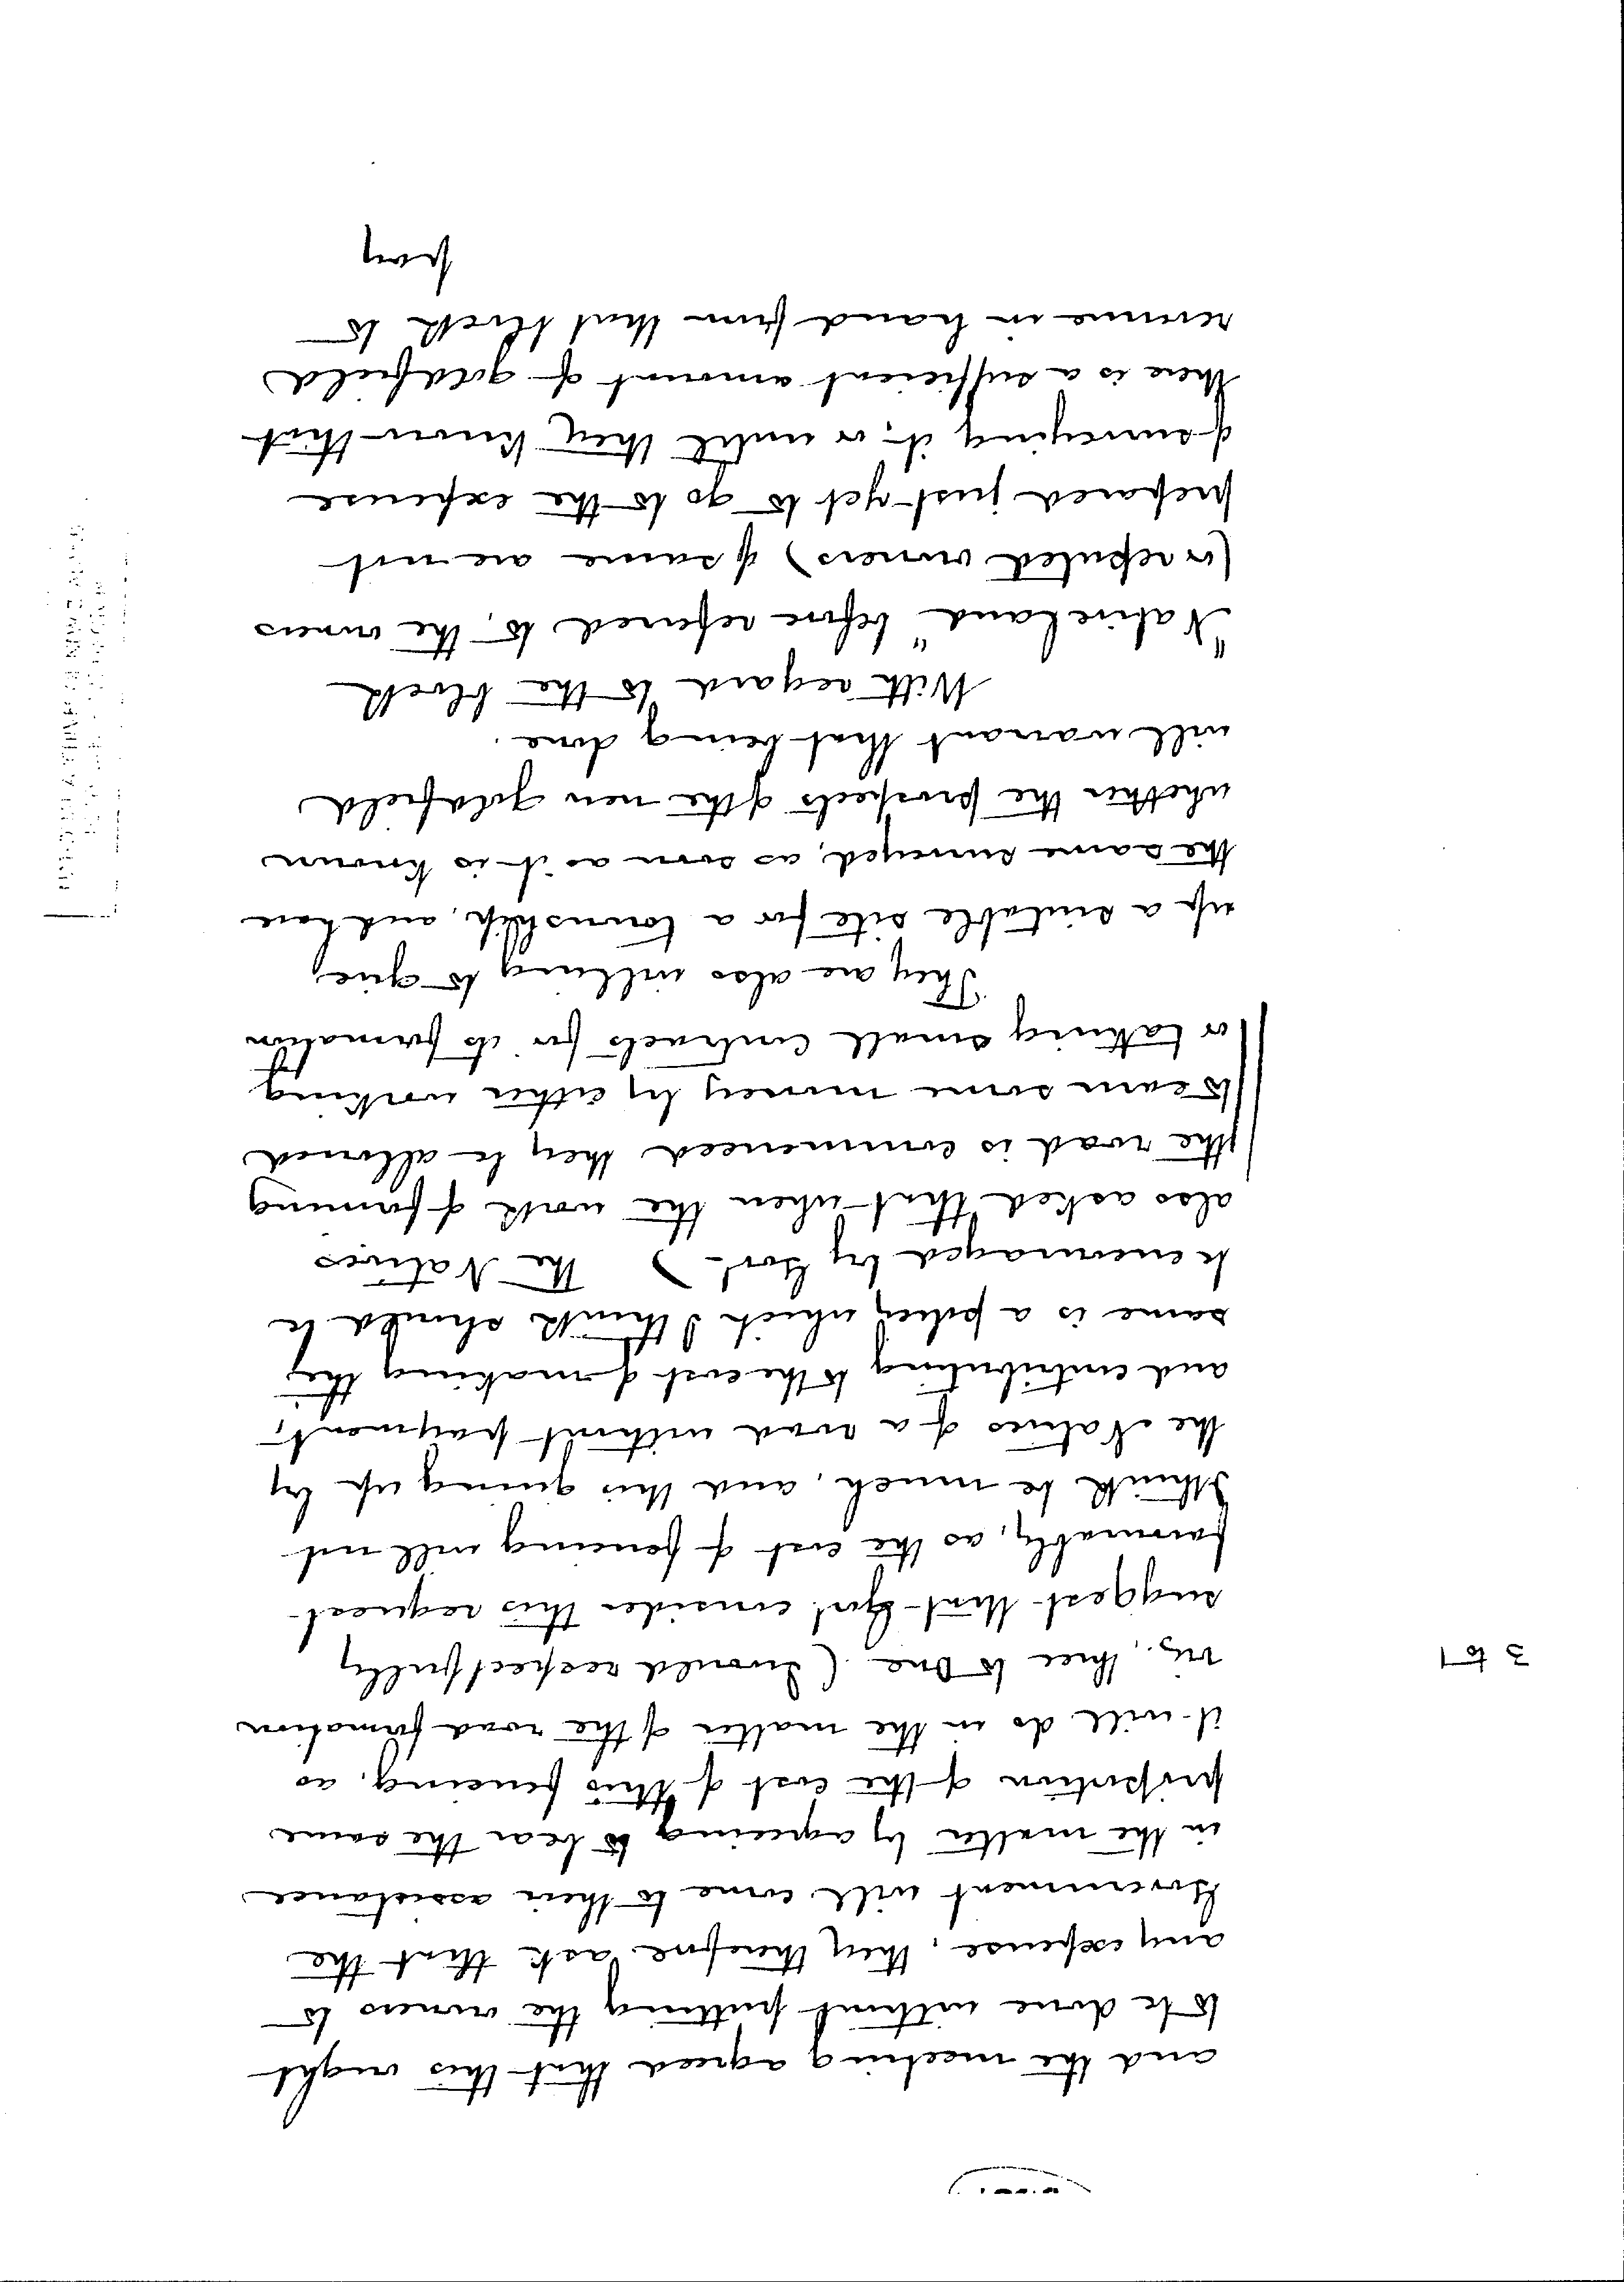 and the meeting agreed that this ought
to be done without putting the owners to
any expense, they therefore ask that the
Government will come to their assistance
in the matter by agreeing to bear the same
proportion of the cost of this fencing, as
it will do in the matter of the road formation
viz., three to one (I would respectfully
3 to 1
suggest that Govt. consider this request
favourably, as the cost of fencing will not
I think be much, and this giving up by
the Natives of a road without payment,
and contributing to the cost of making the
same is a policy which I think should be
encouraged by Govt.) The Natives
also asked that when the work of forming
the road is commenced they be allowed
to earn some money by either working
or taking small contracts for its formation
They are also willing to give
up a suitable site for a township, and have
the same surveyed, as soon as it is known
whether the prospects of the new goldfield
will warrant that being done.
With regard to the block
"Native land" before referred to, the owners
(or reputed owners) of same are not
prepared just yet to go to the expense
of surveying it, or until they know that
there is a sufficient amount of goldfield
revenue in hand from that block to
pay